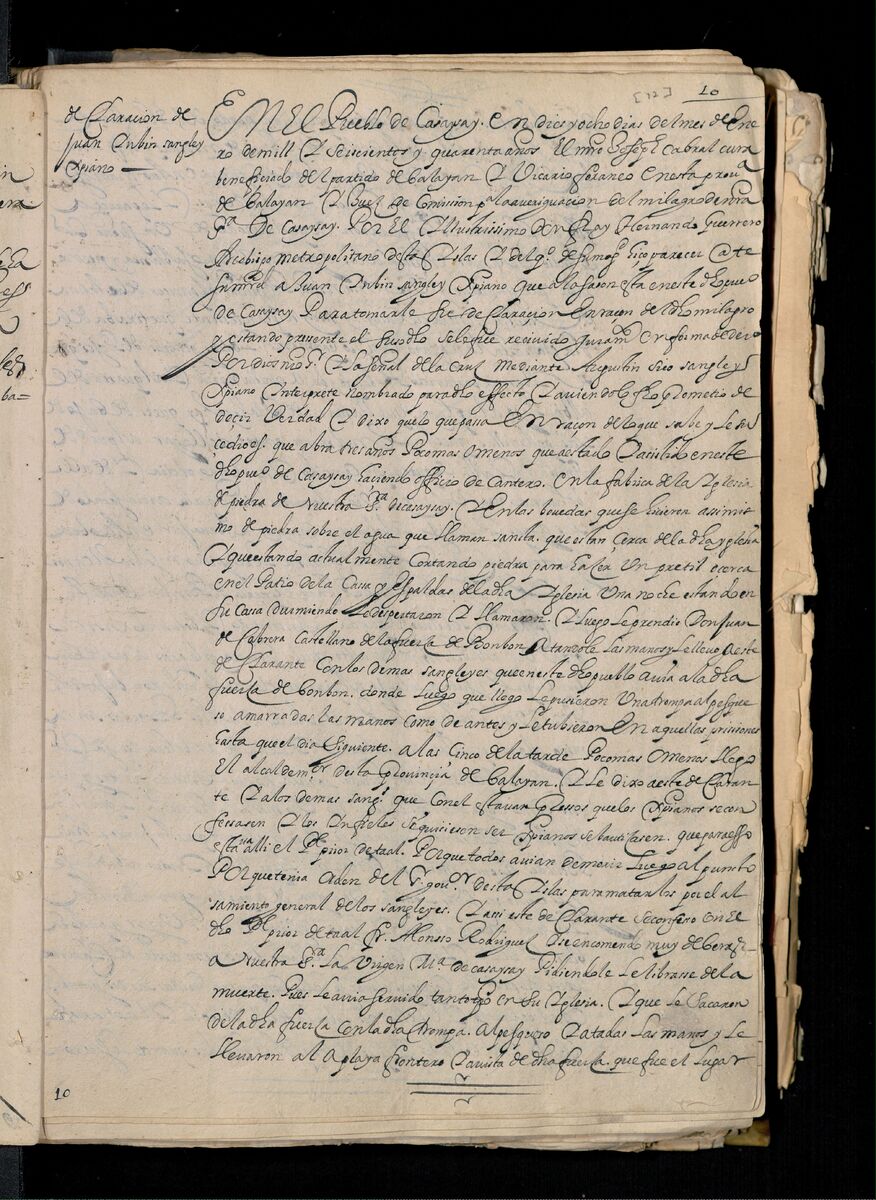 [12] 10
de Claracion de
Juan Dubin sangley
Xpiano —
EN El Pueblo de Casaysay. En dies y ocho dias del mes de Ene
ro de mill Y Seiscientos y quarenta años El mro Joseph Cabral cura
beneficiado del partido de balayan Y Vicario foraneo en esta prouª
de balayan Y Juez de Comission pª la aueriguacion del milagro de nra
Sra De Casaysay. POR El Yllustrissimo Don fray Hernando Guerrero
Arcobispo metropolitano desta Yslas Y del qº de su magd hiço pareçer Ante
su mrd a Juan Dubin sangley Xpiano que a la sason esta en este dho pueº
De Casaysay Para tomarle su de Claraçion En raçon del dho milagro
y estando presente el susodho se le fue reciuido juramto en forma de dero
Por dios nro Sr Y la señal de la Cruz mediante Augustin sico sangley
Xpiano Ynterprete nombrado para dho effecto Y auiendolo fho Prometio de
deçir Verdad Y dixo que lo que passa En raçon de lo que sabe y le su
çedio es. que abra tres años Poco mas o menos que a estado Y asistido en este
dho pueº de Casaysay haciendo officio de Cantero. en la fabrica de la Yglesia
de piedra de Nuestra Sra de casaysay. Y En las bouedas que se hicieron assimis
mo de piedra sobre el agua que llaman sancta. que estan çerca de la dha yglesia
Y que estando actualmente Cortando piedra para haçer Un pretil o cerca
en el Patio de la Casa y espaldas de la dha Yglesia Una noche estando en
su Cassa Durmiendo Le despertaron Y llamaron. Y luego Le prendio Don Juan
de Cabrera Castellano de la fuerça de Bonbon Atandole Las manos y Le lleuo a este
de Clarante Con los demas sangleyes que en este dho pueblo auia a la dha
fuerça de bonbon. donde luego que llego Le pusieron Una trompa al pescue
so amarradas las manos como de antes y Le tubieron En aquellas prissiones
hasta que el dia Siguiente. a las Cinco de la tarde Poco mas o menos llego
El alcalde mor desta Prouinçia de balayan. Y Le dixo a este de Claran
te Y a los demas sangs que con el estauan pressos que los Xpianos se con
fessasen Y los Ynfieles si quisiesen ser Xpianos se bautiçasen. que para esso
estaua alli el Pe prior de taal. Porque todos auian de morir luego al punto
Porque tenia orden del Sr gour desta Yslas para matarlos por el al
samiento general de los sangleyes. Y assi este de Clarante se confeso con El
dho Pe prior de taal fr Alonsso Rodriguez Y se encomendo muy de beras
a Nuestra Sra La Uirgen Mª de casaysay Pidiendole Le librasse de la
muerte. Pues Le auia seruido tanto tpo en su Yglesia. Y que Le Sacaron
de la dha fuerça con la dha trompa. Al pescueço Y atadas Las manos y Le
lleuaron al A playa frontero Y a uista de dha fuerça. que fue el lugar
10